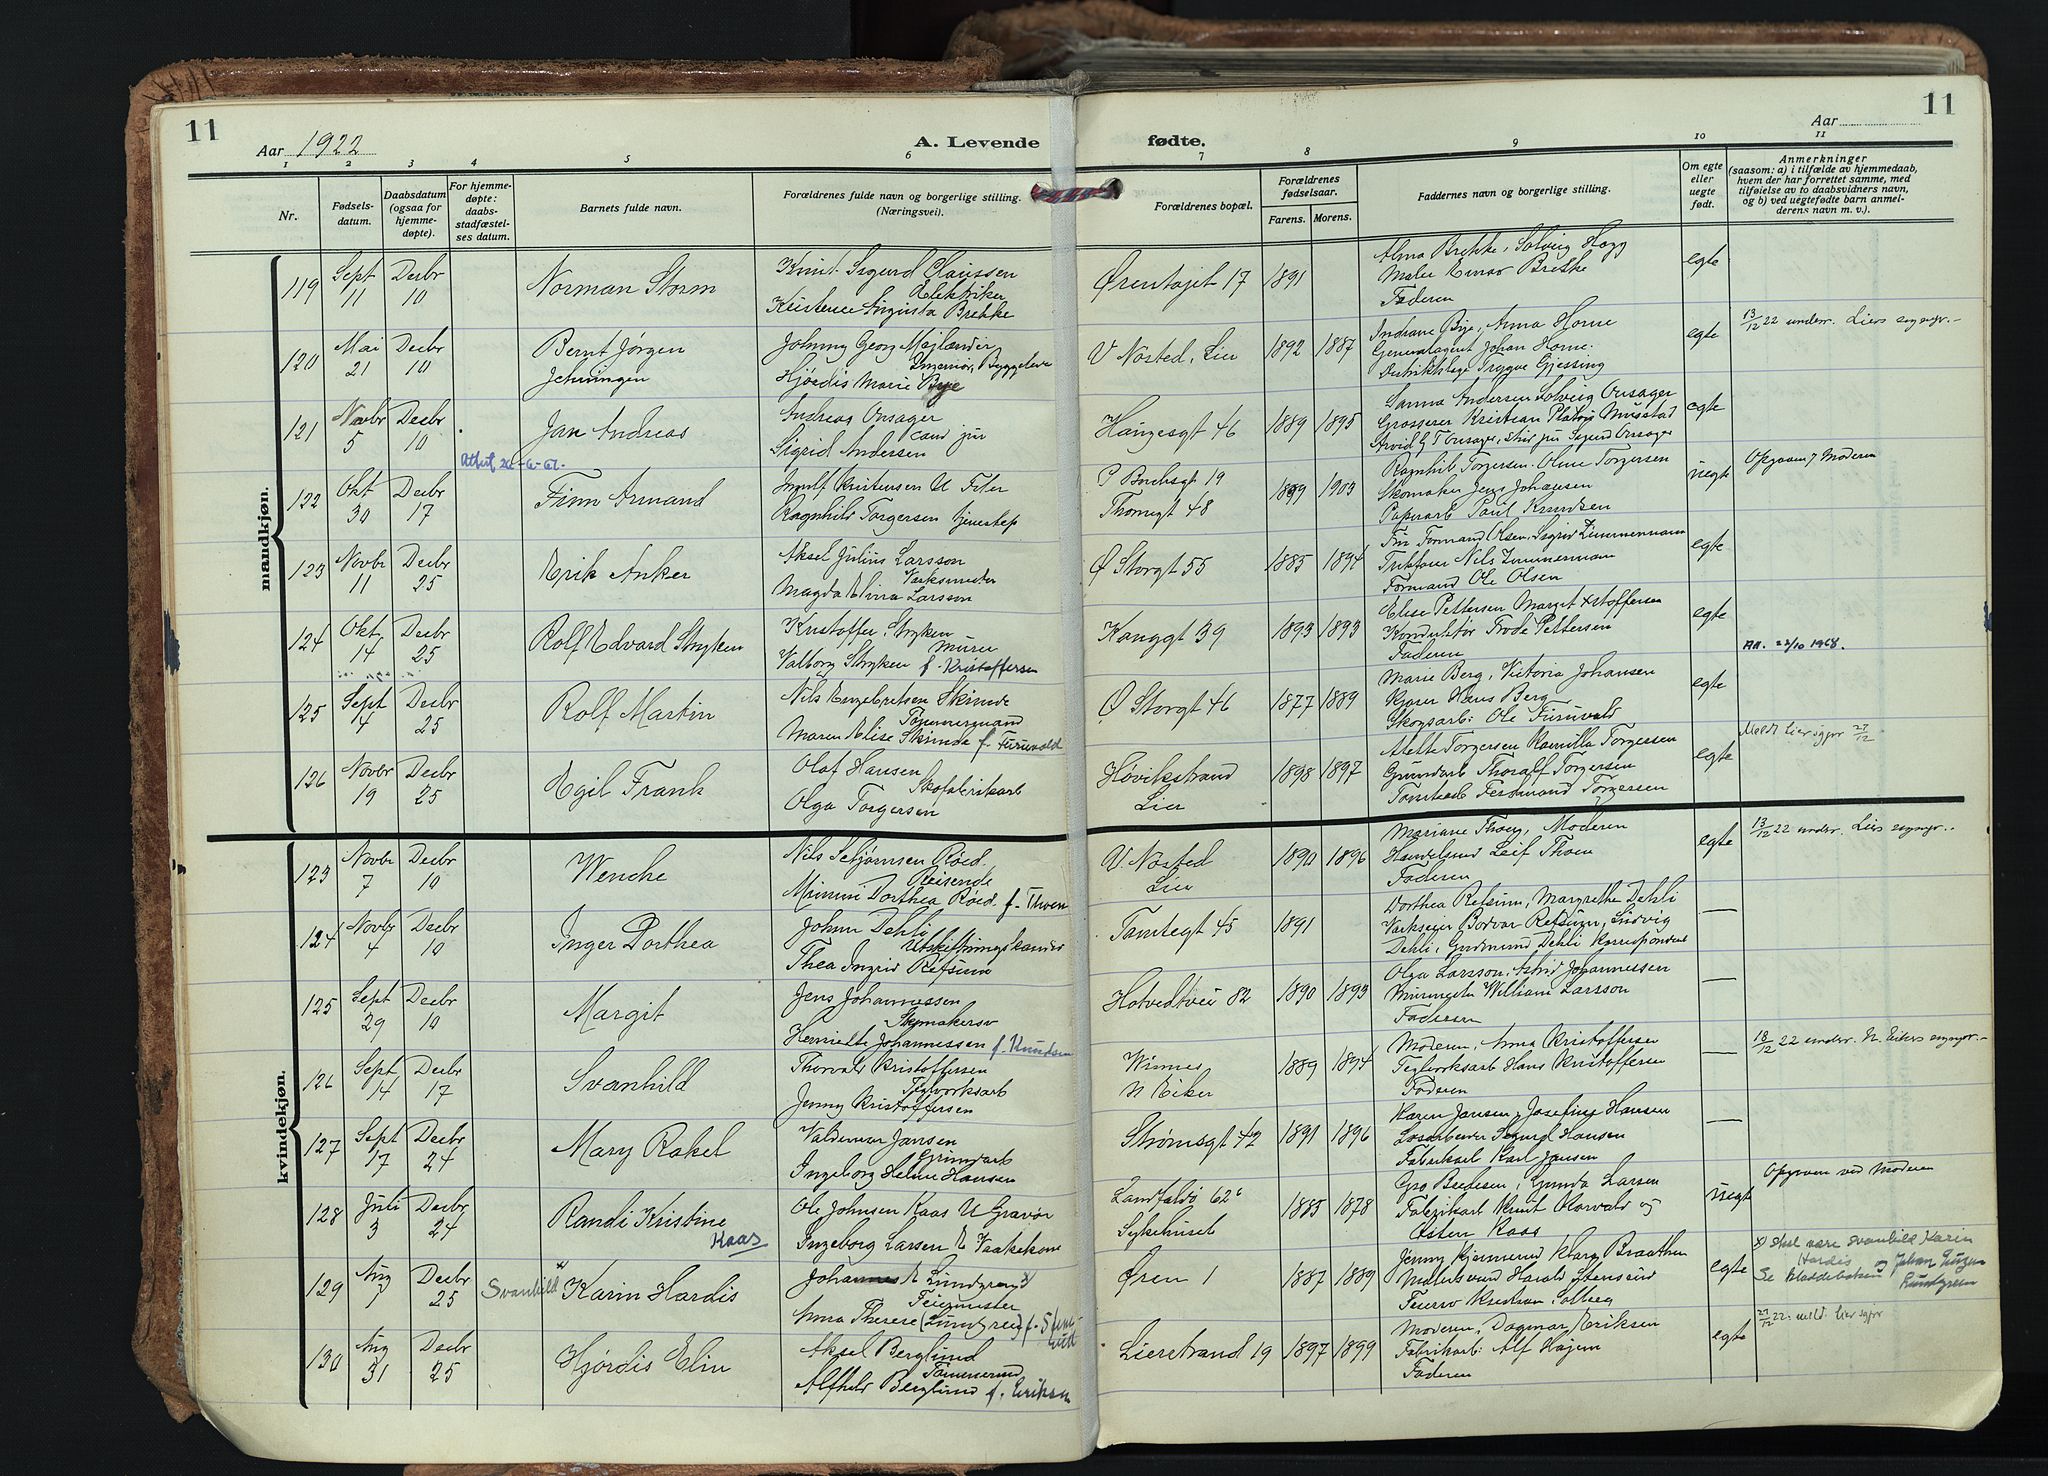 11
Aar 1922
A. Levende fødte.
Aar
11
1 2 3 4 5 6 7 8 9 10 11
Nr.
Fødsels-
datum.
Daabsdatum
(ogsaa for
hjemme-
døpte).
For hjemme-
døpte:
daabs-
stadfæstel-
ses datum.
Barnets fulde navn.
Forældrenes fulde navn og borgerlige stilling.
(Næringsvei).
Forældrenes bopæl.
Forældrenes
fødselsaar.
Farens. Morens.
Faddernes navn og borgerlige stilling.
Om egte
eller
uegte
født.
Anmerkninger
(saasom: a) i tilfælde av hjemmedaab,
hvem der har forrettet samme, med
tilføielse av to daabsvidners navn,
og b) ved uegtefødte barn anmel-
derens navn m. v.).
mandkjøn.
119 Sept 11 Decbr 10 Norman Storm
Knut Sigurd Claussen
Elektriker
Kristence Augusta Brekke
Ørentojet 17 1891
Alma Brekke, Solveig Hogg
Maler Einar Brekke
Faderen
egte
120 Mai 21 Decbr 10 Bernt Jørgen
Johnny Georg Majlænder
Hjørdis Marie Bye
V Nøsted, Lier 1892 1887
Indiane Bye, Anna Horne
Generalagent Johan Horne
Distriktslæge Trygve Gjessing
egte
13/12 22 underr. Liers sognepr.
121 Novbr 5 Decbr 10 Jan Andreas
Andreas Onsager
cand jur
Sigrid Andersen
Haugesgt 46 1889 1895
Sanna Andersen Solveig Onsager
Grosserer Kristian Mustad
egte
122 Okt 30 Decbr 17
Attest 26-6-61.
Finn Armand
Ingolf Kristensen U Filer
Ragnhild Torgersen tjenestep
19
Thomegt 48 1899 1903
Ragnhild Torgersen Oline Torgersen
Skomaker Jens Johansen
Papirarb Paul Knudsen
uegte
Opgaven Moderen
123 Novbr 11 Decbr 25 Erik Anker
Aksel Julius Larsson
Verksmester
Magda Elvira Larsson
Ø Storgt 55 1885 1894
Olsen, Sigrid Zimmermann
Nils Zimmermann
Formand Ole Olsen
egte
124 Okt 14 Decbr 25 Rolf Edvard Stryken
Kristoffer Stryken
Murer
Valborg Stryken f. Kristoffersen
Konggt 39 1893 1893
Elise Pettersen Margit Kstoffersen
Konduktør Frode Pettersen
Faderen
egte
Att. 22/10 1968.
125 Sept 4 Decbr 25 Rolf Martin
Nils Engebretsen Skimde
Tømmermand
Maren Elise Skimde f. Furuvald
Ø Storgt 46 1877 1889
Marie Berg, Victoria Johansen
Kjører Hans Berg
Skogsarb: Ole Furuvald
egte
126 Novbr 19 Decbr 25 Egil Frank
Olaf Hansen
Skofabrikarb
Olga Torgersen
Høvikstrand
Lier 1898 1897
Alette Torgersen Kamilla Torgersen
Grundarb Thoralf Torgersen
Tomtearb Ferdinand Torgersen
egte
Meldt Lier sgpr 27/12
kvindekjøn.
123 Novbr 7 Decbr 10 Wenche
Nils Sebjørnsen Røed.
Reisende
Mimmi Dorthea Røed. f. Thoen
V. Nøsted
Lier 1890 1896
Mariane Thoen, Moderen
Handelsmd Leif Thoen
Faderen
egte
13/12 22 underr. Liers sognepr.
124 Novbr 4 Decbr 10 Inger Dorthea
Johan Dehli
Utskiftningskandid
Thea Ingrid Refsum
Tomtegt 45 1891
Dorthea Refsum, Margrethe Dehli
Verkseier Bodvar Refsum, Ludvig
Dehli, Gudmund Dehli Korrespondent
—
125 Sept 29 Decbr 10 Margit
Jens Johannessen
Skomakersv
Henriette Johannessen f. Knudsen
Hotvedtvei 82 1890 1893
Olga Larsson, Astrid Johannessen
William Larsson
Faderen
—
126 Sept 14 Decbr 17 Svanhild
Thorvald Kristoffersen
Teglverksarb
Jenny Kristoffersen
Winnes
N Eiker 1889 1894
Moderen, Anna Kristoffersen
Teglverksarb Hans Kristoffersen
Faderen
—
18/12 22 underr. N. Eikers sognepr.
127 Sept 17 Decbr 24 Mary Rakel
Valdemar Jansen
Grundarb
Ingeborg Helene Hansen
Strømsgt 42 1891 1896
Karen Jansen, Josefine Hansen
Løsarbeider Sigurd Hansen
Fabrikarb Karl Jansen
—
128 Juli 3 Decbr 24 Randi Kristine
Kaas
Ole Johnsen Kaas U Gravør
Ingeborg Larsen E Vaskekone
Landfaldø 62c
Sykehuset 1885 1878
Gro Bredesen, Gunda Larsen
Fabrikarb Knut Horvald og
Østen Kaas
uegte
Opgaven ved Moderen
129 Aug 7 Decbr 25 Svanhild Karin Hardis
Johannes E Lundgren x)
Feiermester
Anna Therese (Lundgren) f.
Øren 1 1887 1889
Jenny Hjemmerud Klara Braathen
Harald Stensrud
Feiersv Kristian Solberg
egte
x) skal være Svanhild Karin
Hardis og Johan
Se kladdeboken Lundgren
130 Aug 31 Decbr 25 Hjørdis Elin
Aksel Berglund
Tømmermd
Alfhild Berglund f. Eriksen
Lierstrand 19 1897 1899
Moderen, Dagmar Eriksen
Fabrikarb: Alf Hojem
Faderen
egte
27/12 22. meld. Lier sgpr